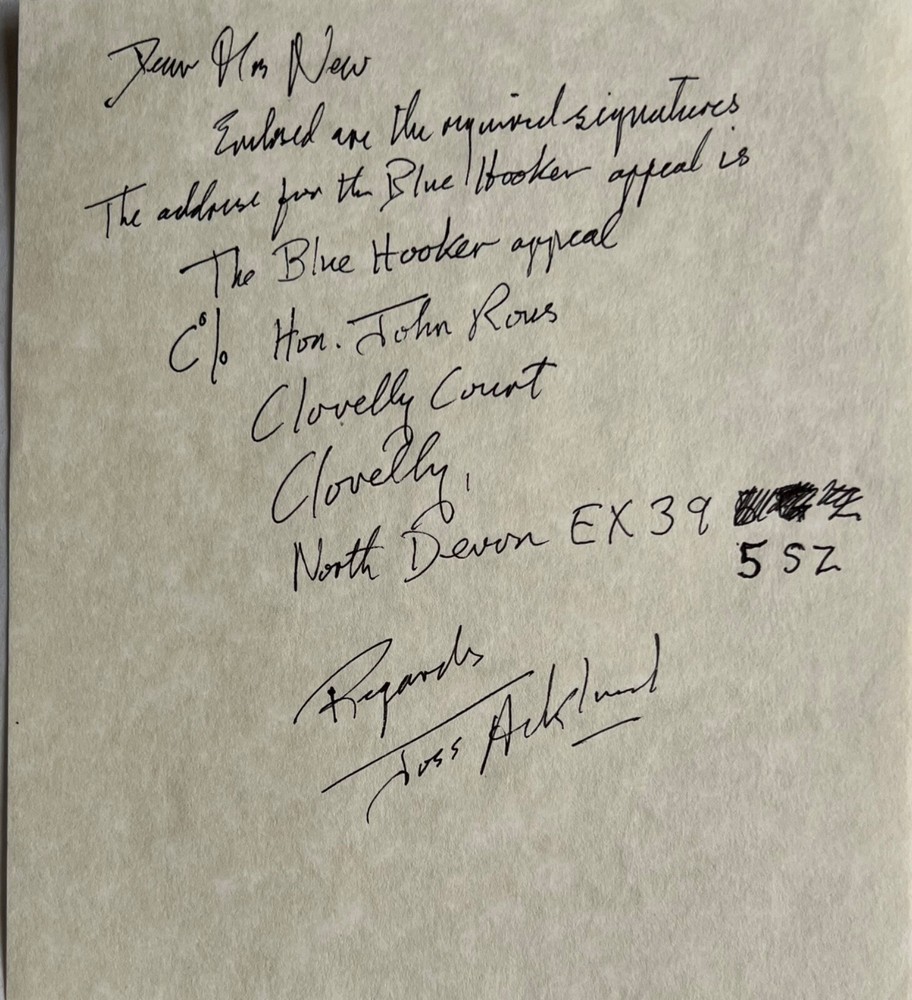 Dear Mrs New
Enclosed are the required signatures
The address for the Blue Hooker appeal is
The Blue Hooker appeal
C/o Hon. John Rous
Clovelly Court
Clovelly,
North Devon EX39
5SZ
Regards
Joss Ackland